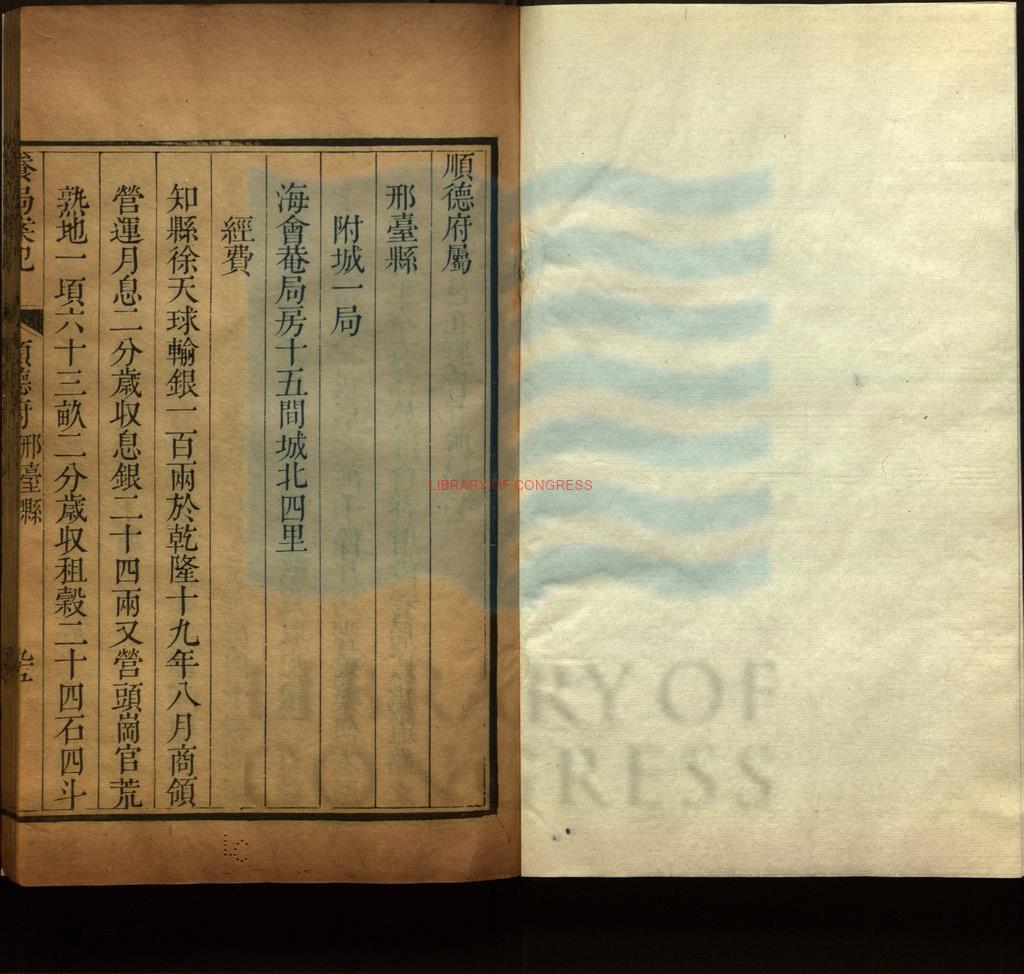 順德府屬
邢臺縣
附城一局
海會菴局房十五間城北四里
經費
知縣徐天球輸銀一百兩於乾隆十九年八月商領
營運月息二分歲收息銀二十四兩又營頭崗官荒
熟地一項六十三畝二分歲收租穀二十四石四斗
留局案記 順德府 邢臺縣
LIBRARY OF CONGRESS
LIBRARY OF
CONGRESS